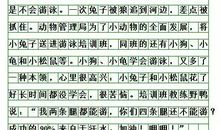 是不会游泳。一次兔子被狼追到河边，差点被
抓住。动物管理局为了小动物的全面发展，将
小兔子送进游泳培训班，同班的还有小狗、小
龟和小松鼠等。小狗、小龟学会游泳，又多了
一种本领，心里很高兴，小兔子和小松鼠花了
好长时间都没学会，很苦恼。培训班教练野鸭
说：“我两条腿都能游，你们四条腿还不能游？
成功的90%来自于汗水。加油！